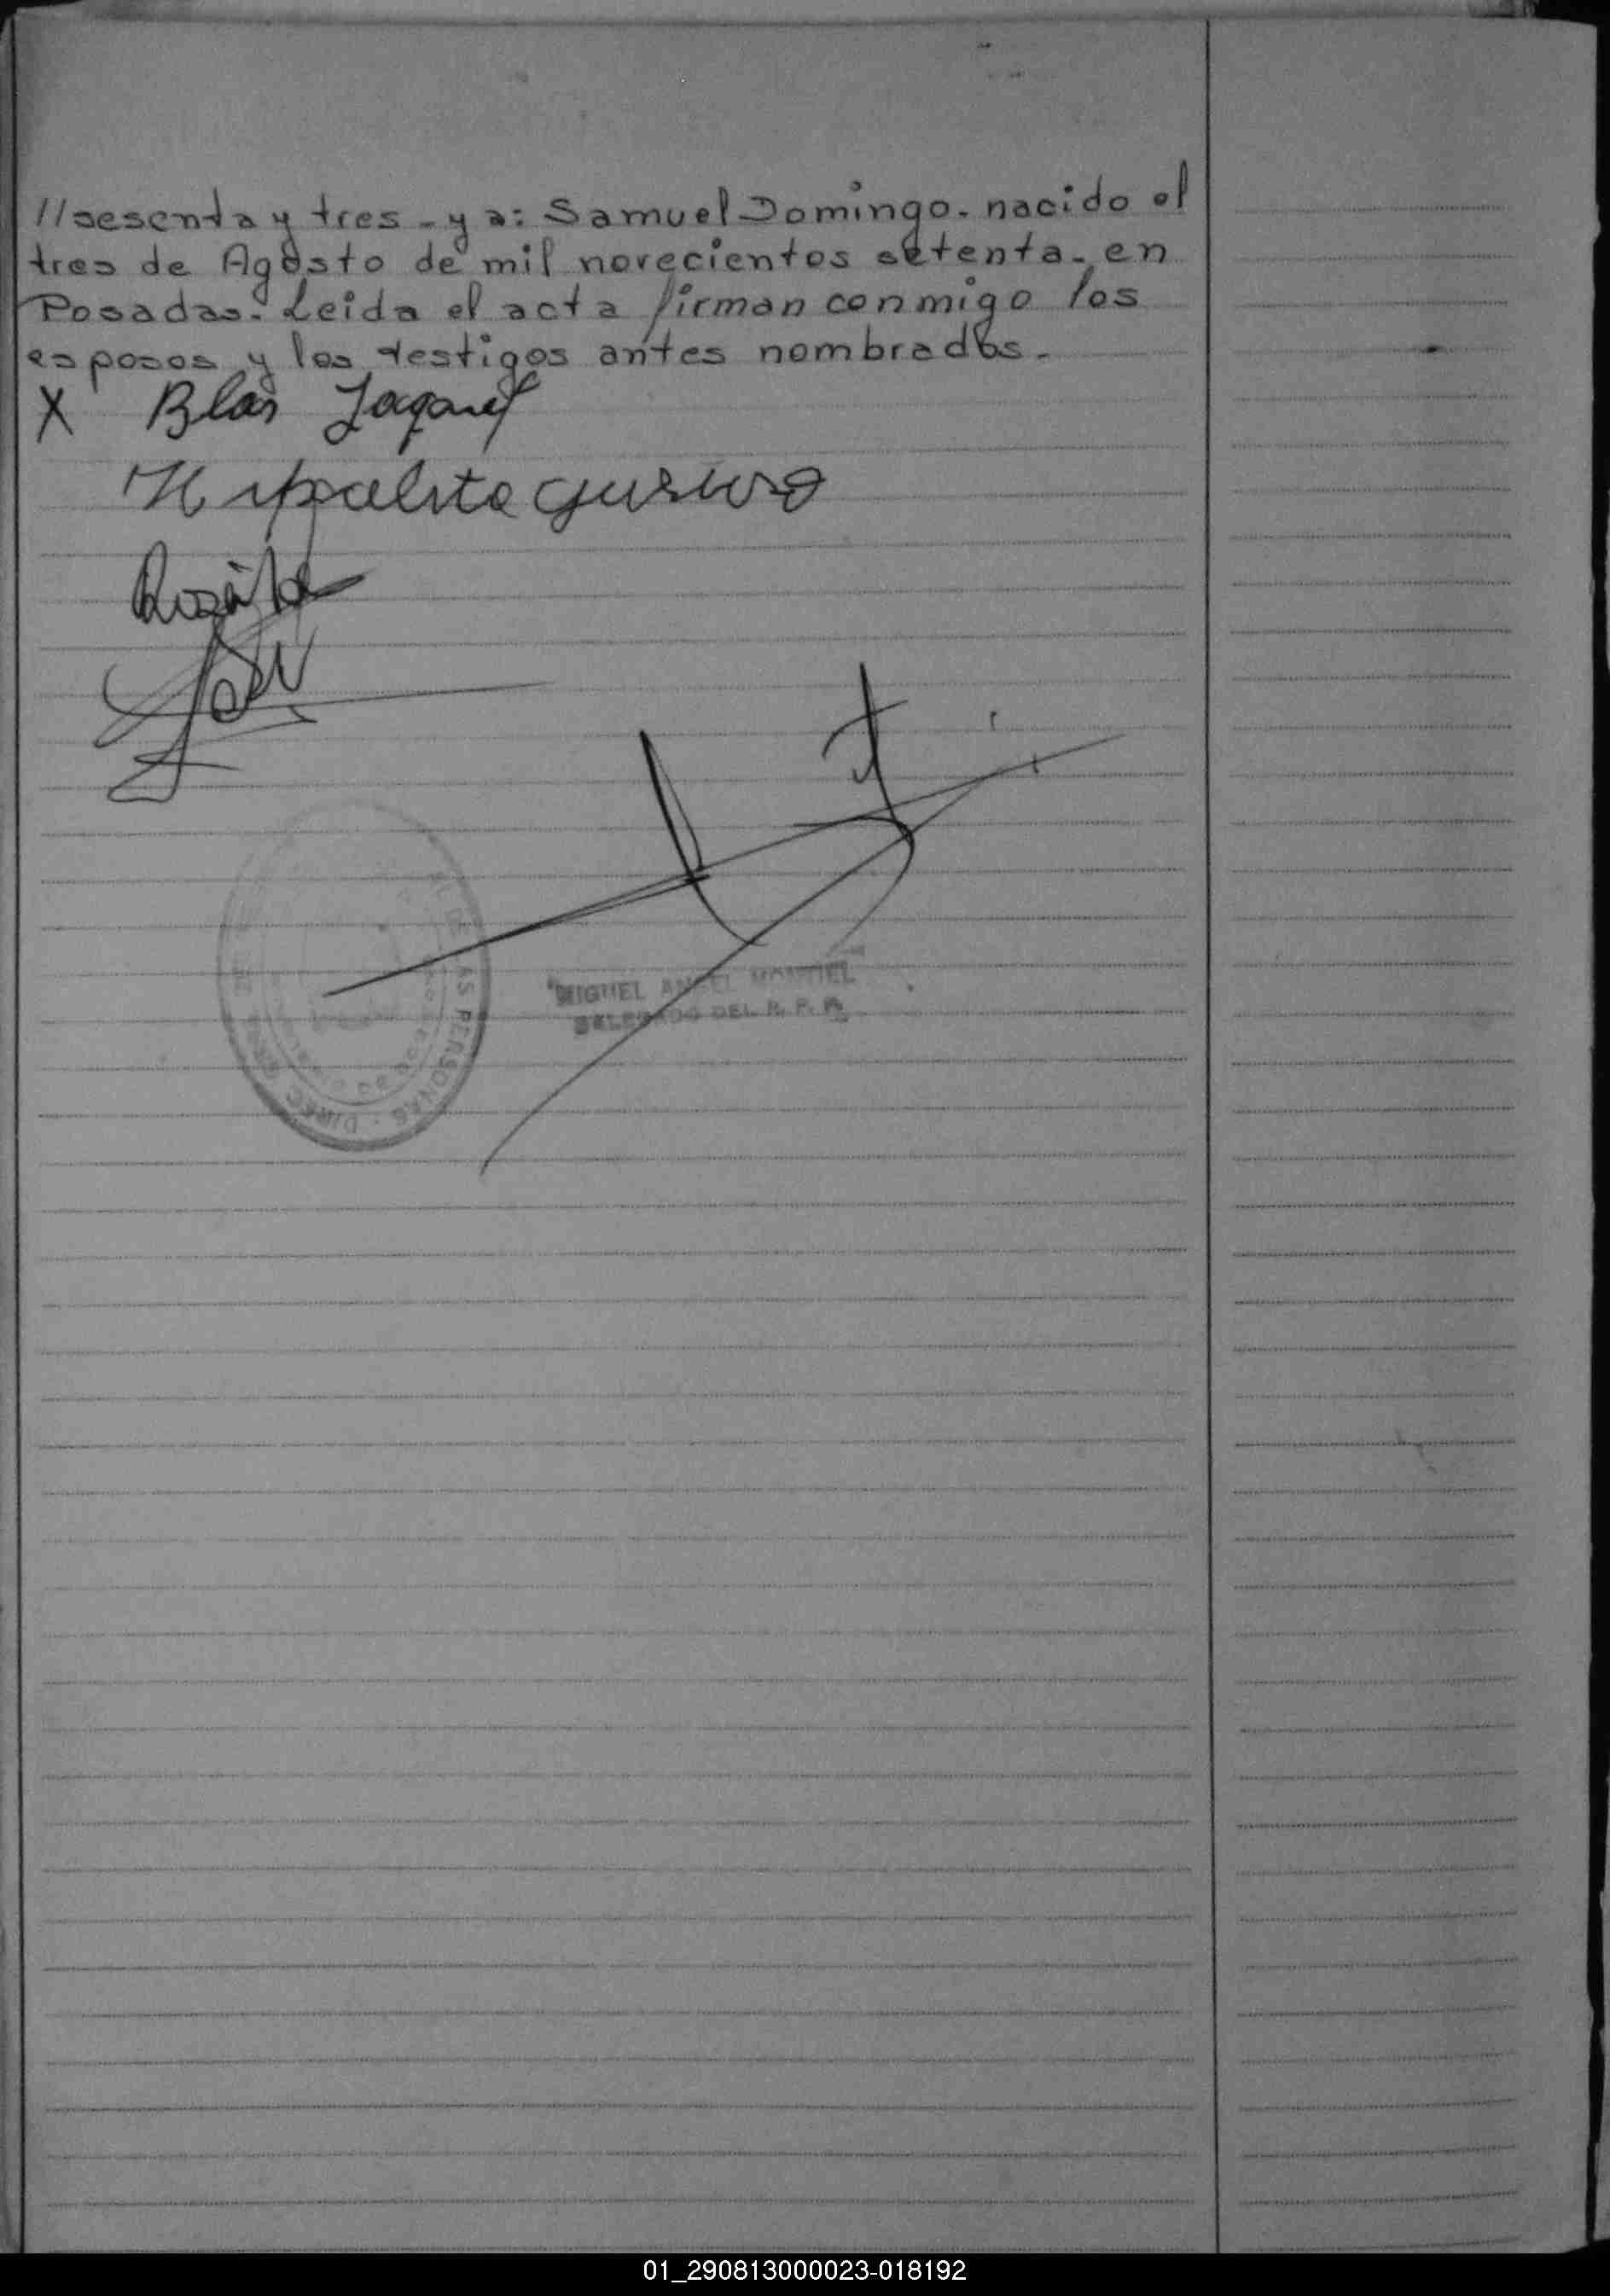 //sesenta y tres - y a: Samuel Domingo. nacido el
tres de Agosto de mil novecientos setenta. en
Posadas. Leida el acta firman conmigo los
esposos y los testigos antes nombrados.
X Blas
Hipolito
MIGUEL ANGEL MONTIEL
DELEGADO DEL R. P. P.
AS PERSONAS · DIREC
01_290813000023-018192